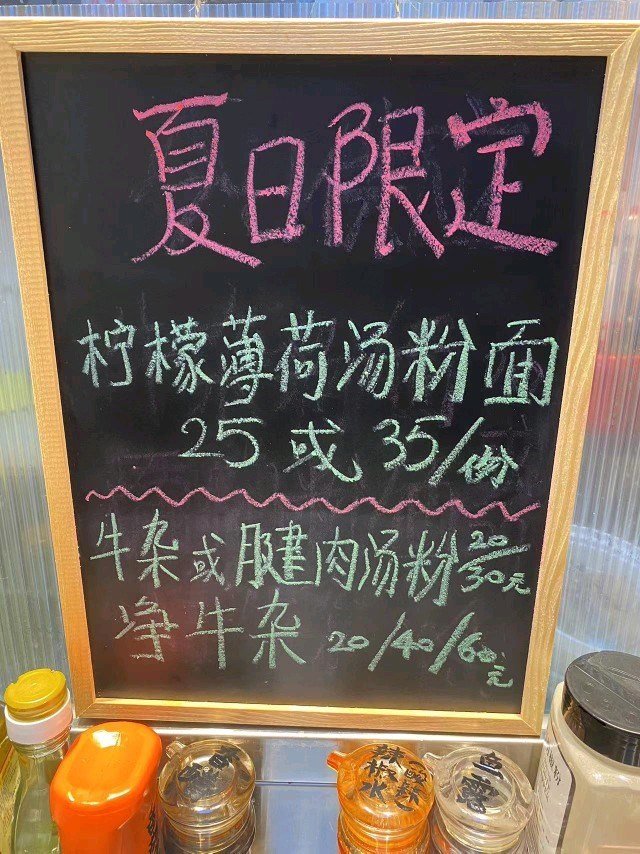 夏日限定
柠檬薄荷汤粉面
25 或 35/份
牛杂或腱肉汤粉 20/30元
净牛杂 20/40/60元
辣椒水
鱼露